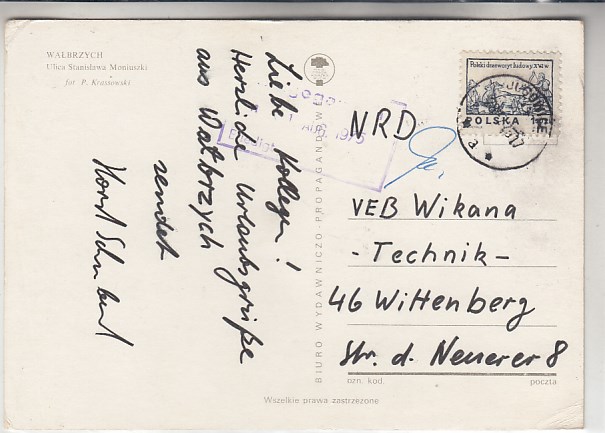 WAŁBRZYCH
Ulica Stanisława Moniuszki
fot P. Krassowski
Liebe Kollegen!
Herzliche Urlaubsgrüße
aus Wałbrzych
sendet
Horst Schubert
BIURO WYDAWNICZO-PROPAGANDOWE
Polski drzeworyt ludowy XVI w
POLSKA 1
NRD
VEB Wikana
- Technik -
46 Wittenberg
Str. d. Neuerer 8
ozn. kod. poczta
Wszelkie prawa zastrzeżone